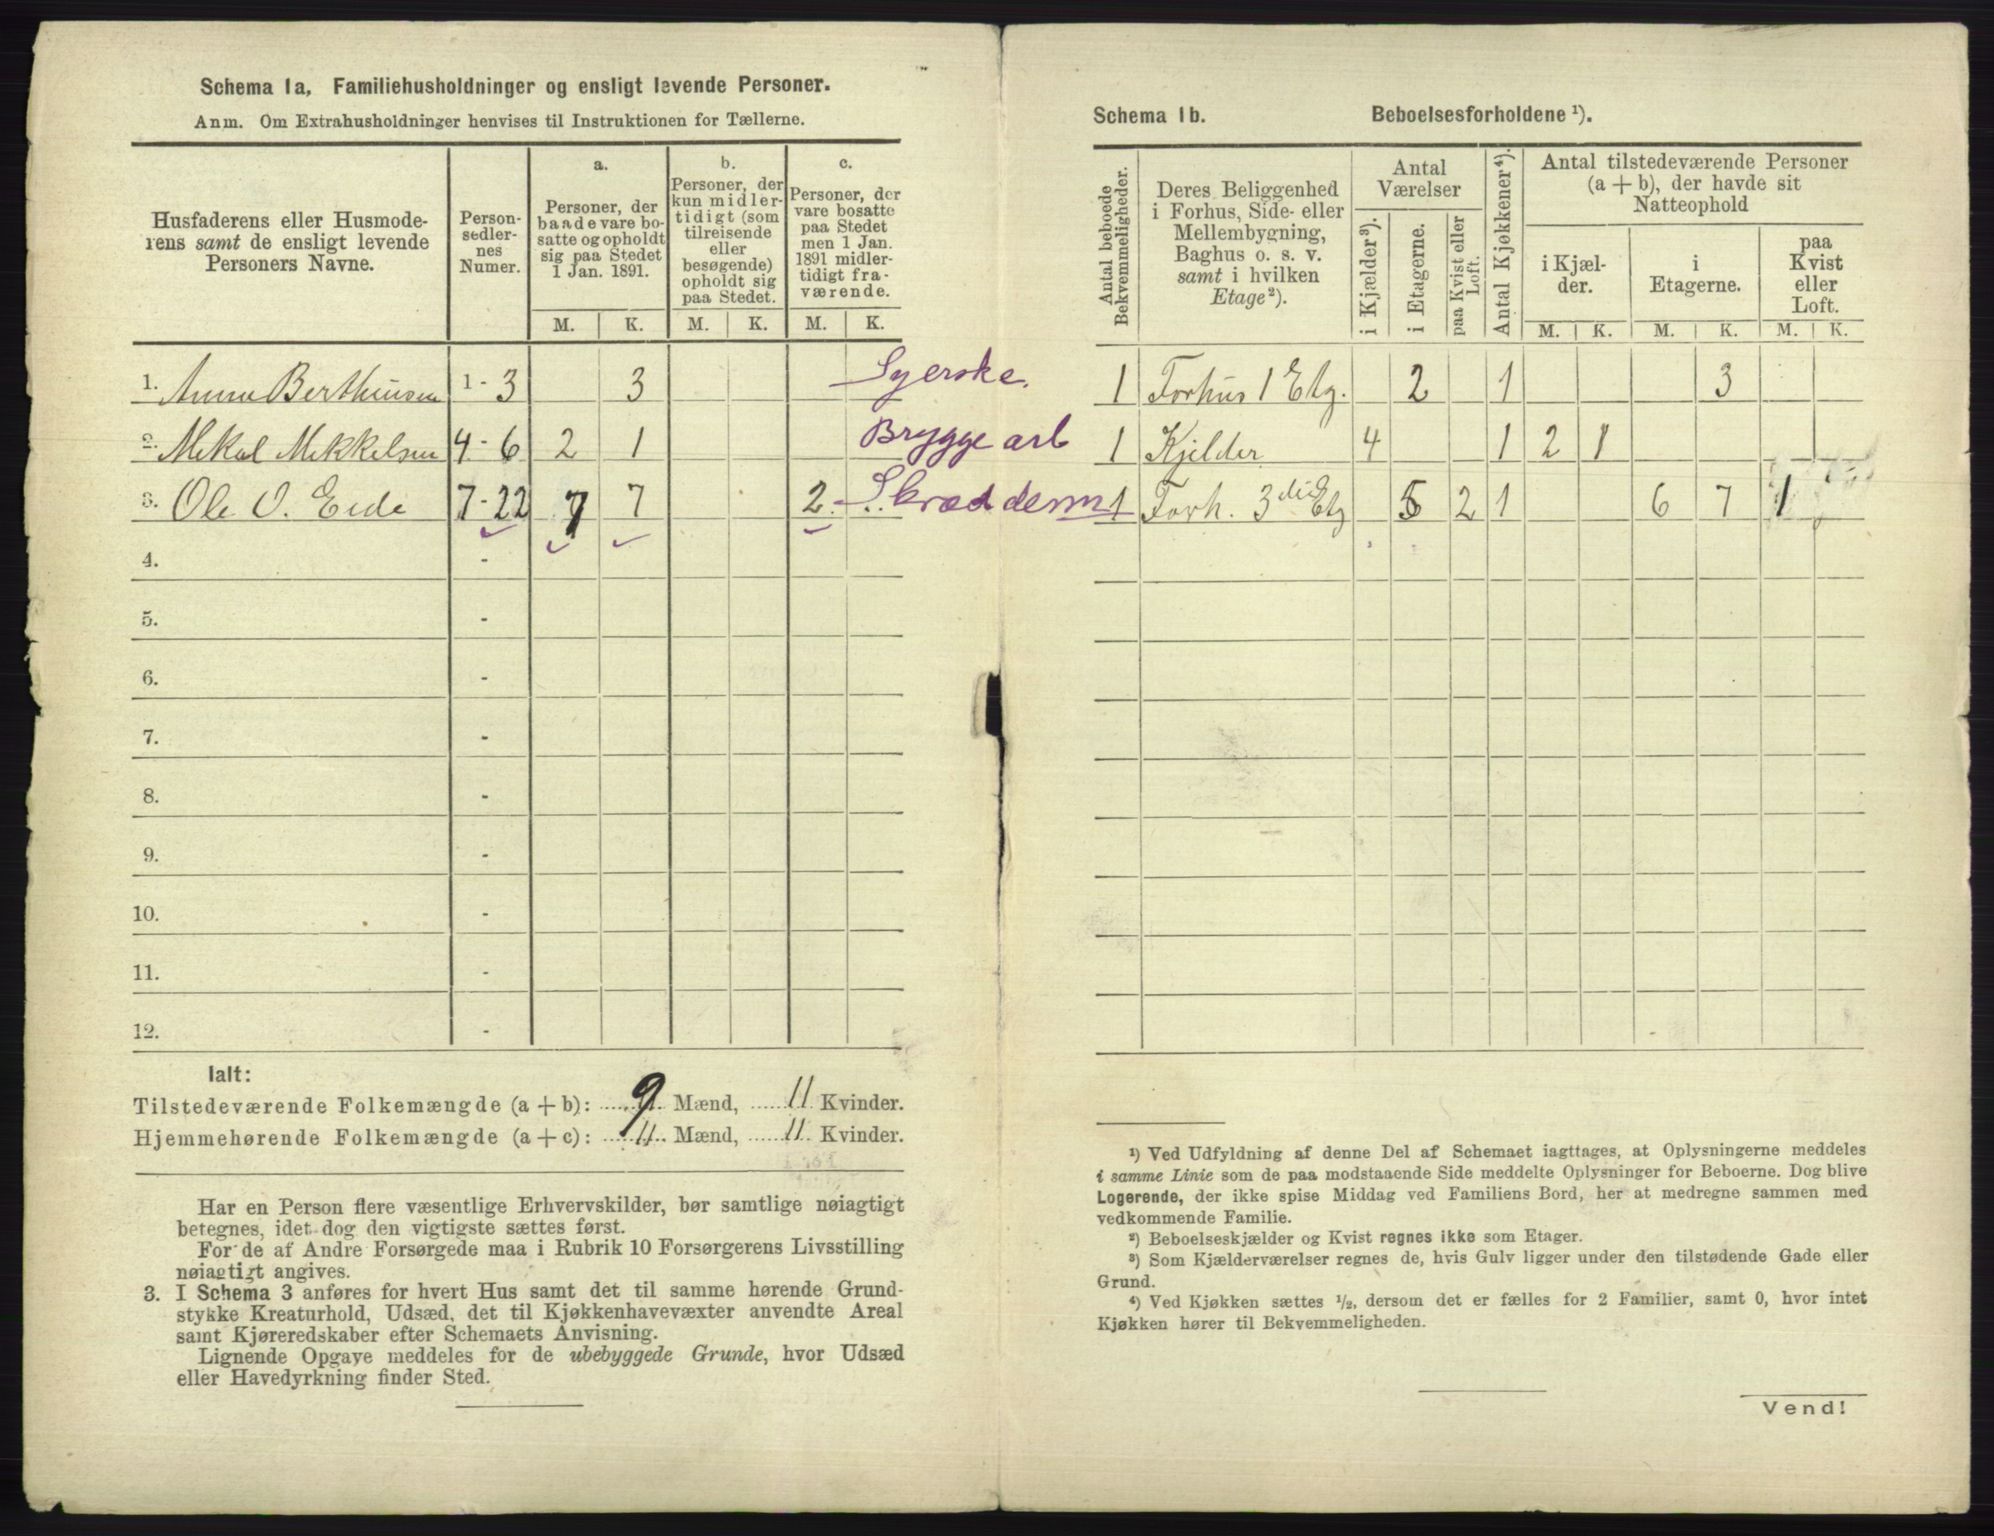 Schema 1a, Familiehusholdninger og ensligt levende Personer.
Anm. Om Extrahusholdninger henvises til Instruktionen for Tællerne.
Husfaderens eller Husmode-
rens samt de ensligt levende
Personers Navne.
Person-
sedler-
nes
Numer.
a.
Personer, der
baade vare bo-
satte og opholdt
sig paa Stedet
1 Jan. 1891.
b.
Personer, der
kun midler-
tidigt (som
tilreisende
eller
besøgende)
opholdt sig
paa Stedet.
c.
Personer, der
vare bosatte
paa Stedet
men 1 Jan.
1891 midler-
tidigt fra-
værende.
M. K. M. K. M. K.
1. Anne Berthinsen 1 - 3 3 Syerske.
2. Mikal Mikkelsen 4 - 6 2 1 Brygge arb
3. Ole O. Eide 7 - 22 7 7 2 Skræddderm
4. -
5. -
6. -
7. -
8. -
9. -
10. -
11. -
12. -
Ialt:
Tilstedeværende Folkemængde (a + b): 9 Mænd, 11 Kvinder.
Hjemmehørende Folkemængde (a + c): 11 Mænd, 11 Kvinder.
Har en Person flere væsentlige Erhvervskilder, bør samtlige nøiagtigt
betegnes, idet dog den vigtigste sættes først.
For de af Andre Forsørgede maa i Rubrik 10 Forsørgerens Livsstilling
nøiagtigt angives.
3. I Schema 3 anføres for hvert Hus samt det til samme hørende Grund-
stykke Kreaturhold, Udsæd, det til Kjøkkenhavevæxter anvendte Areal
samt Kjøreredskaber efter Schemaets Anvisning.
Lignende Opgave meddeles for de ubebyggede Grunde, hvor Udsæd
eller Havedyrkning finder Sted.
Schema 1b. Beboelsesforholdene ¹).
Antal beboede
Bekvemmeligheder.
Deres Beliggenhed
i Forhus, Side- eller
Mellembygning,
Baghus o. s. v.
samt i hvilken
Etage²).
Antal
Værelser
i Kjælder³).
i Etagerne.
paa Kvist eller
Loft.
Antal Kjøkkener⁴).
Antal tilstedeværende Personer
(a + b), der havde sit
Natteophold
i Kjæl-
der.
i
Etagerne.
paa
Kvist
eller
Loft.
M. K. M. K. M. K.
1 Forhus 1 Etg. 2 1 3
1 Kjelder 4 1 2 1
1 Forh. 3die Etg 5 2 1 6 7 1
¹) Ved Udfyldning af denne Del af Schemaet iagttages, at Oplysningerne meddeles
i samme Linie som de paa modstaaende Side meddelte Oplysninger for Beboerne. Dog blive
Logerende, der ikke spise Middag ved Familiens Bord, her at medregne sammen med
vedkommende Familie.
²) Beboelseskjælder og Kvist regnes ikke som Etager.
³) Som Kjælderværelser regnes de, hvis Gulv ligger under den tilstødende Gade eller
Grund.
⁴) Ved Kjøkken sættes ½, dersom det er fælles for 2 Familier, samt 0, hvor intet
Kjøkken hører til Bekvemmeligheden.
Vend!